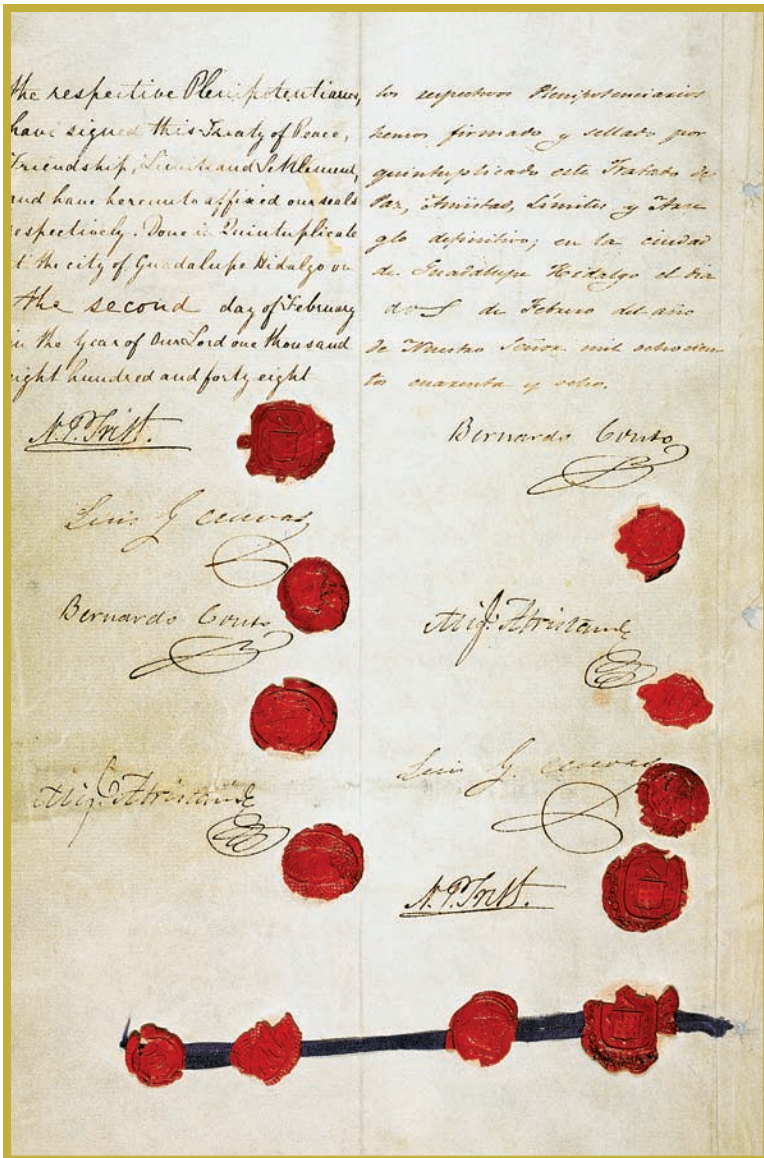 the respective Plenipotentiaries,
have signed this Treaty of Peace,
Friendship, Limits and Settlement,
and have hereunto affixed our seals
respectively. Done in Quintuplicate
at the city of Guadalupe Hidalgo on
the second day of February
in the year of Our Lord one thousand
eight hundred and forty eight
N. P. Trist.
Luis G Cuevas
Bernardo Couto
Migl. Atristain
los respectivos Plenipotenciarios
hemos firmado y sellado por
quintuplicado este Tratado de
Paz, Amistad, Límites y Arre
glo definitivo; en la ciudad
de Guadalupe Hidalgo el dia
dos de Febrero del año
de Nuestro Señor mil ochocien
tos cuarenta y ocho.
Bernardo Couto
Migl. Atristain
Luis G. Cuevas
N. P. Trist.